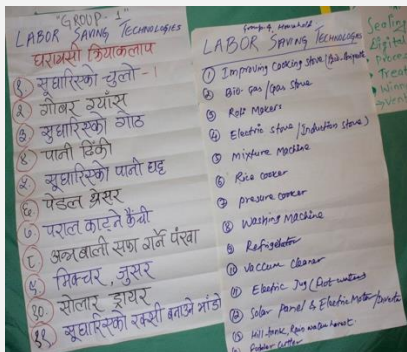 "GROUP-1"
LABOR SAVING TECHNOLOGIES
घरायसी क्रियाकलाप
१) सुधारिएको चुलो - 1
२) गोबर ग्याँस
३) सुधारिएको गोठ
४) पानी ढिकी
५) सुधारिएको पानी घट्ट
६) पेडल थ्रेसर
७) पराल काट्ने कैंची
८) अन्नबाली सफा गर्ने पंखा
९) मिक्चर, जुसर
१०. सोलार ड्रायर
११) सुधारिएको रक्सी बनाउने भाँडो
Group-4 Household
LABOR SAVING TECHNOLOGIES
① Improving Cooking Stove (Bio-Briquette)
② Bio-gas / Gas stove
③ Roti Makers
④ Electric stove / Induction stove)
⑤ Mixture Machine
⑥ Rice cooker
⑦ Presure cooker
⑧ Washing Machine
⑨ Refrigelator
⑩ Vaccume cleaner
⑪ Electric Jug (
⑫ Solar Panel & Electric Motor /
⑬
Sealing
Digital
Proces
Treat
Winn